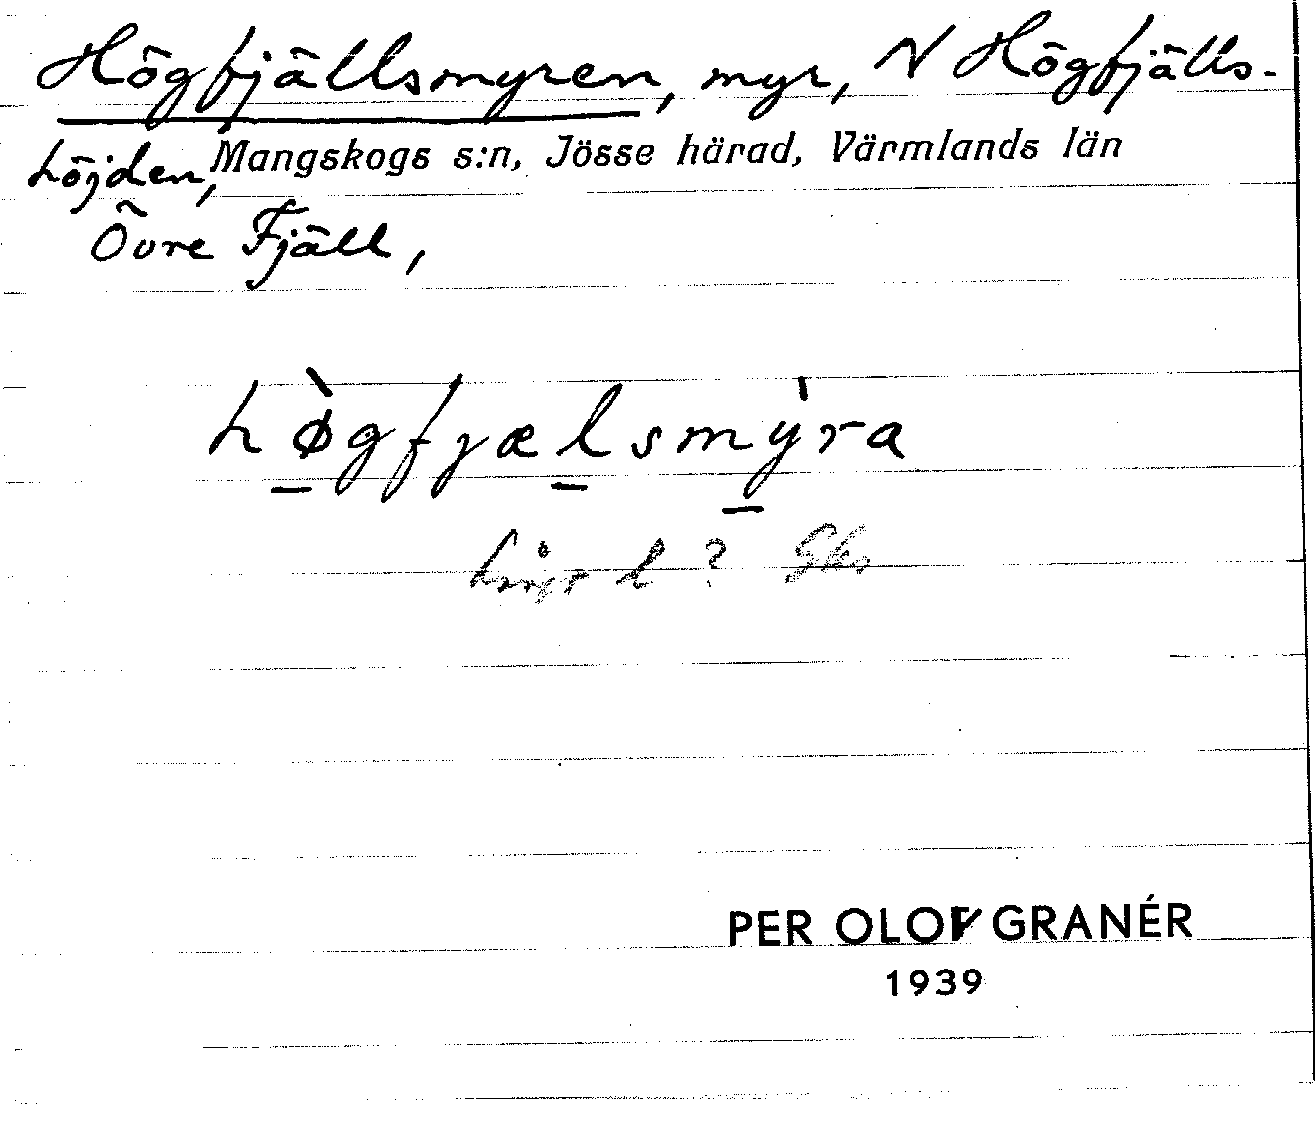 Högfjällsmyren, myr, N Högfjälls-
höjden, Mangskogs s:n, Jösse härad, Värmlands län
Övre Fjäll,
hø̀gfjælsmỳra
l ?
PER OLOV GRANÉR
1939